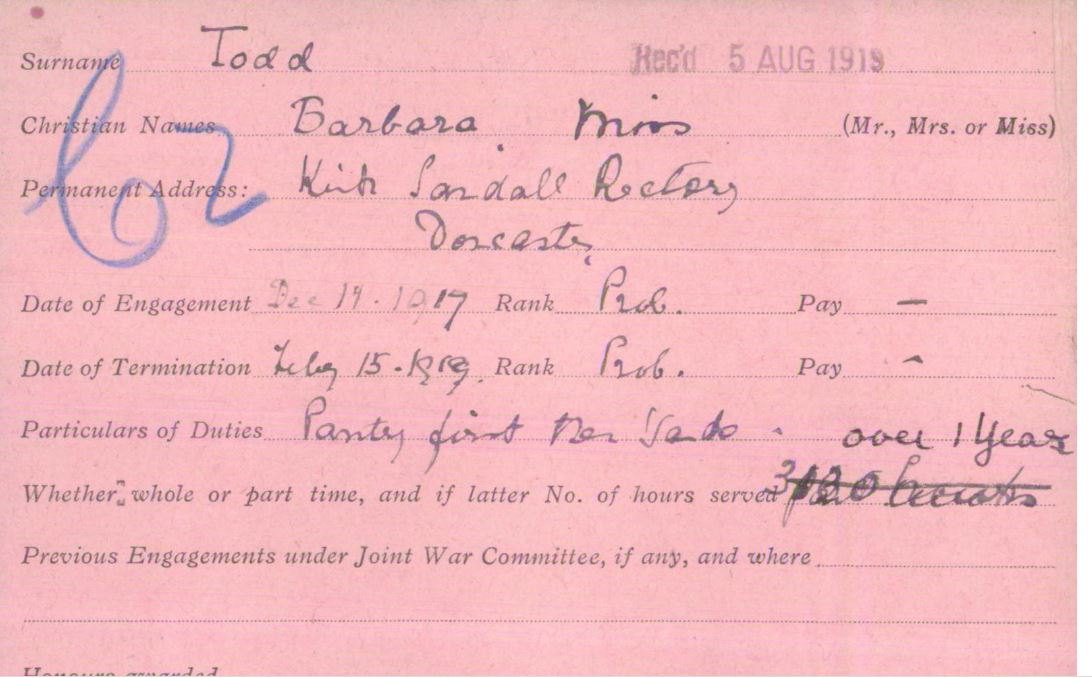 Surname Todd Rec'd 5 AUG 1919
Christian Names Barbara Miss (Mr., Mrs. or Miss)
Permanent Address: Kirk Sandall Rectory
Doncaster
Date of Engagement Dec 19. 1917 Rank Prob. Pay —
Date of Termination Feby 15. 1919. Rank Prob. Pay -
Particulars of Duties Pantry first then Wards. over 1 Year
Whether whole or part time, and if latter No. of hours served
Previous Engagements under Joint War Committee, if any, and where
Honours awarded